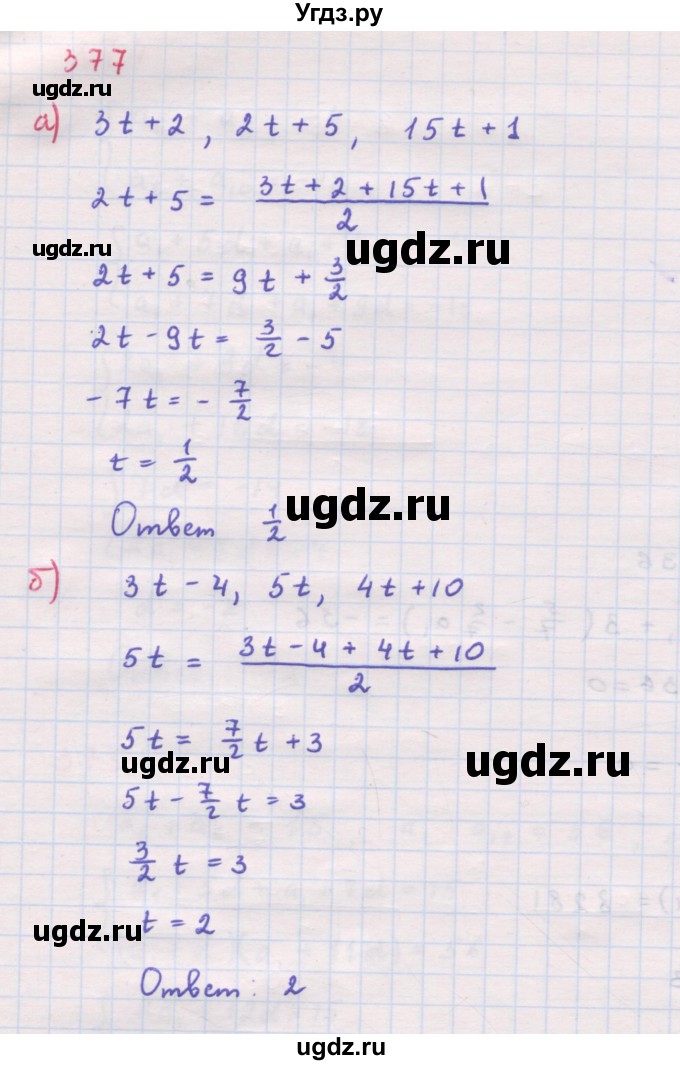 Угдз.ру
377
ugdz.ru
а) 3t + 2, 2t + 5, 15t + 1
2t + 5 = (3t + 2 + 15t + 1)/2
ugdz.ru
ugdz.ru
2t + 5 = 9t + 3/2
2t - 9t = 3/2 - 5
- 7t = - 7/2
t = 1/2
ugdz.ru
Ответ 1/2
б) 3t - 4, 5t, 4t + 10
5t = (3t - 4 + 4t + 10)/2
5t = 7/2 t + 3
ugdz.ru
ugdz.ru
5t - 7/2 t = 3
3/2 t = 3
t = 2
ugdz.ru
Ответ: 2
ugdz.ru